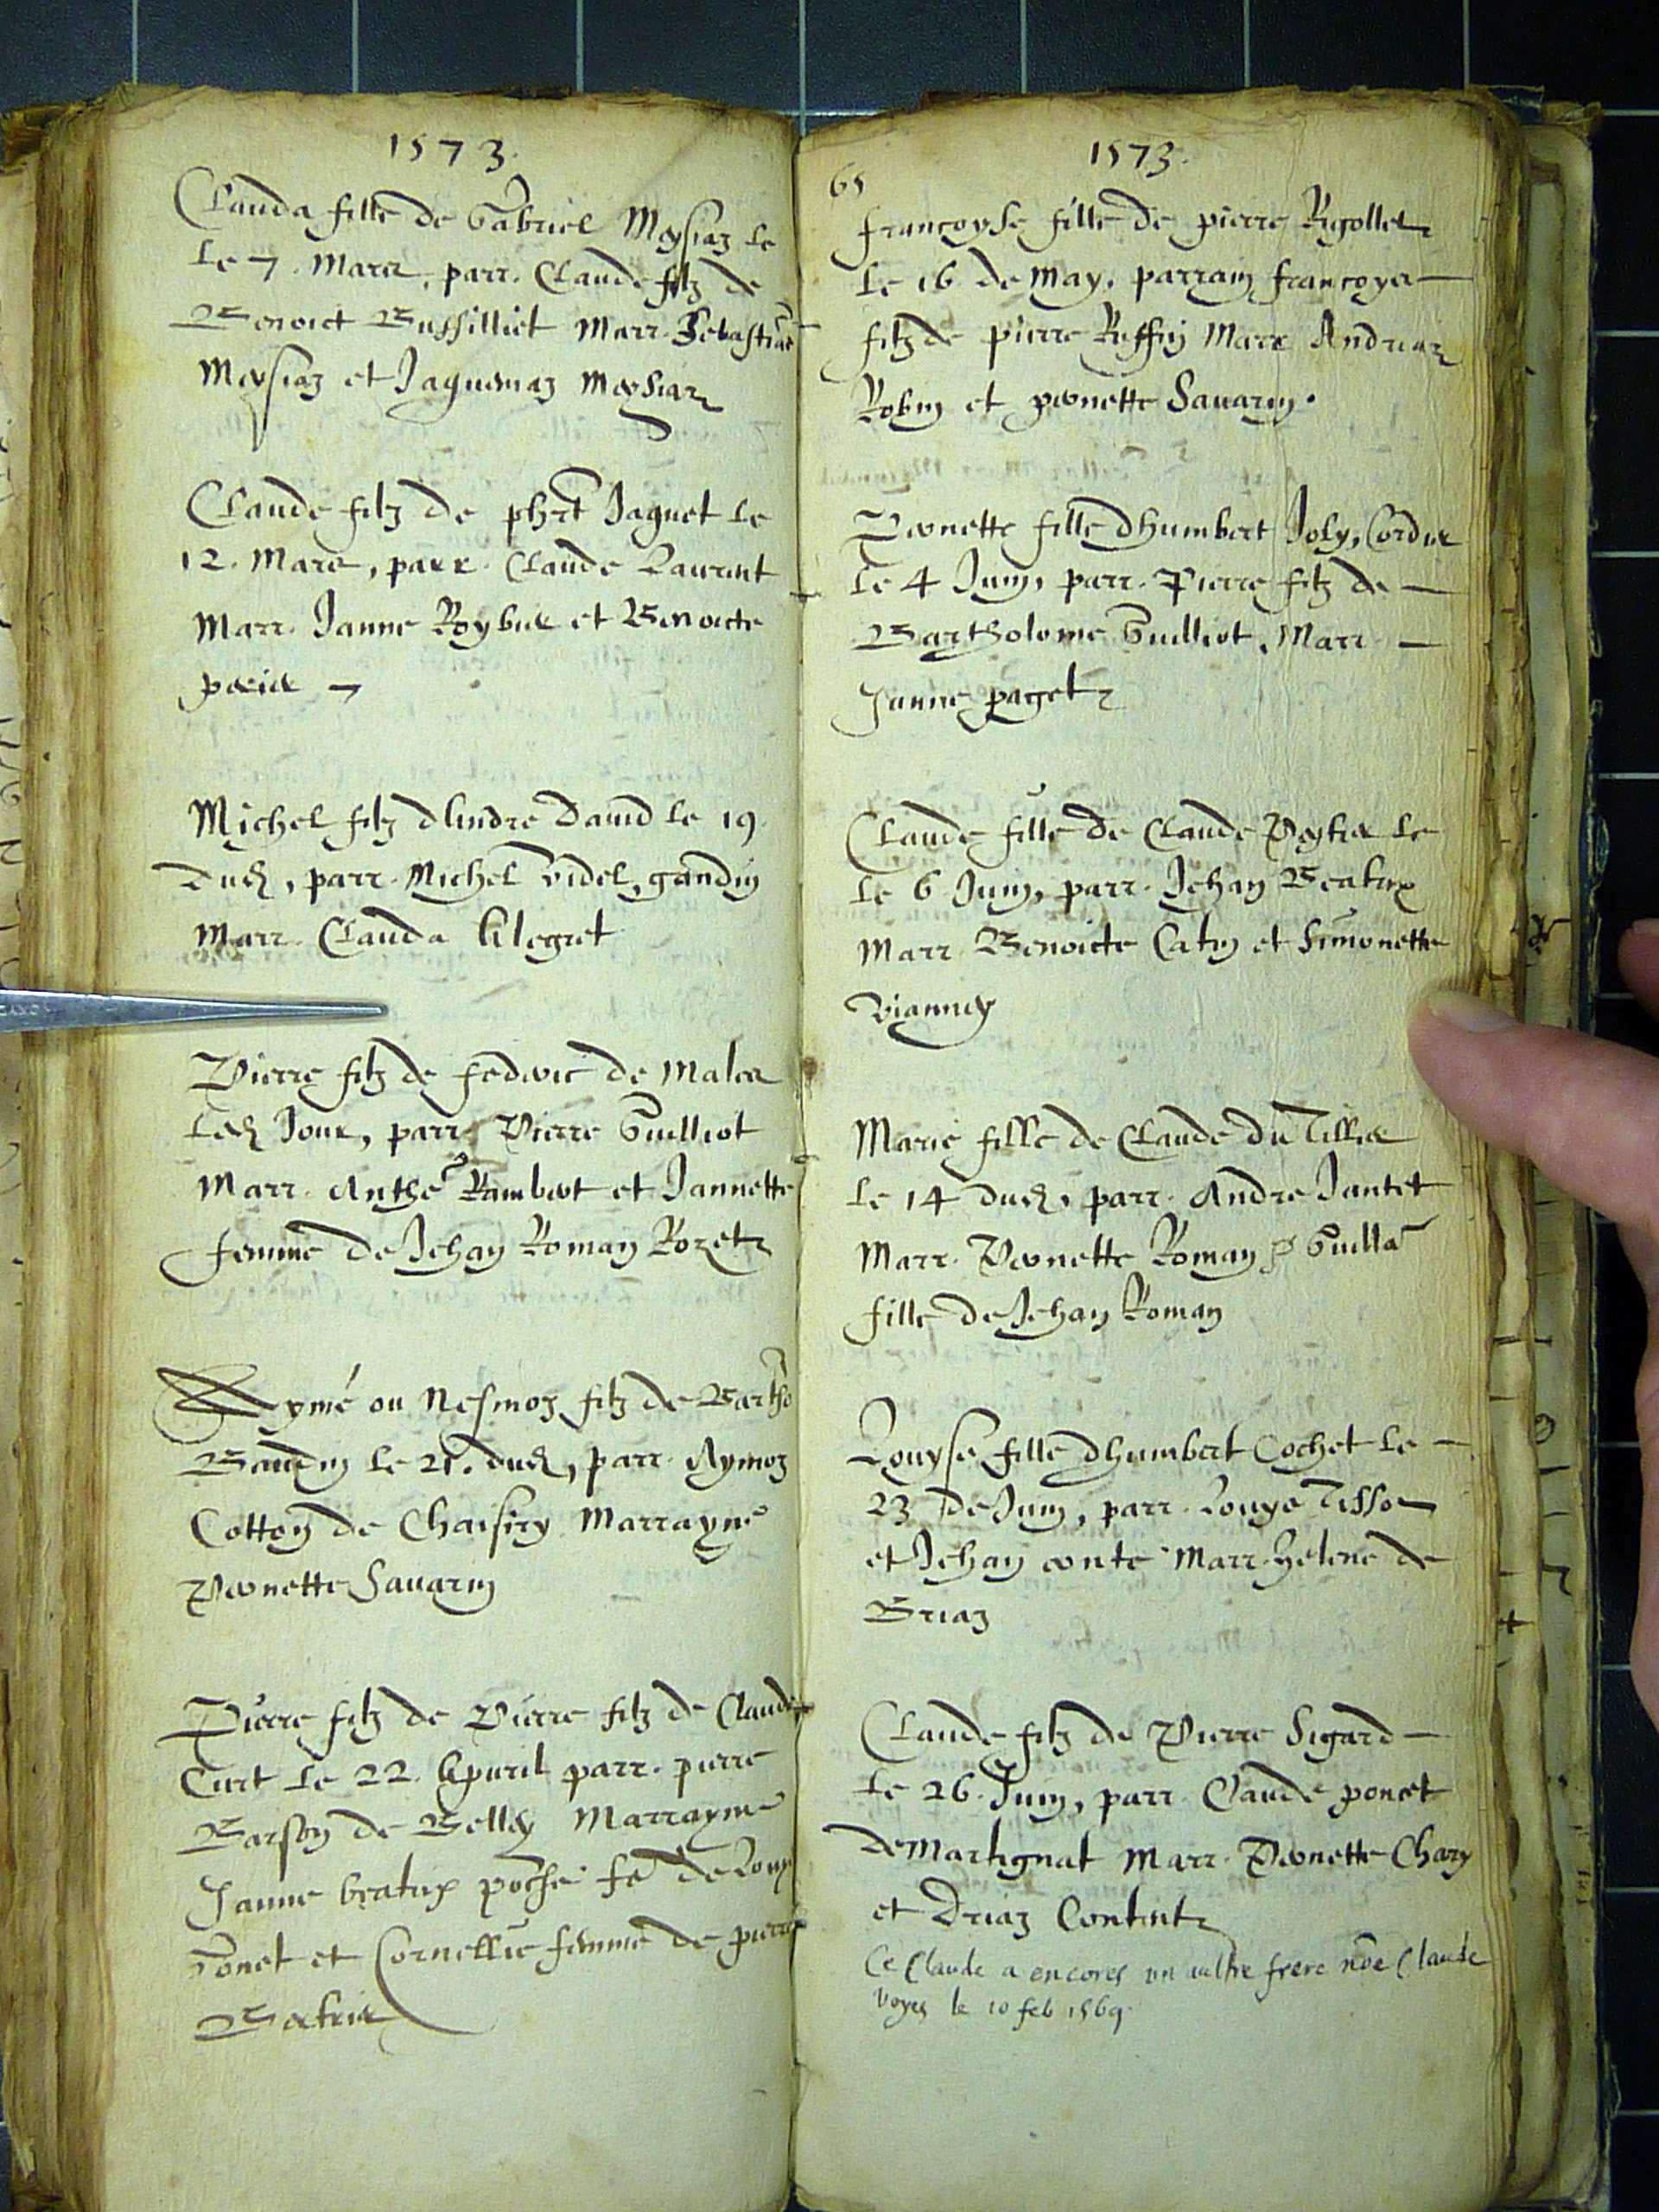 1573.
Clauda fille de Gabriel Meysiaz le
le 7. Mars, parr. Claude filz de
Benoict Bussilliet Marr. Sebastiane
Meysiaz et Jaquemaz Meysiaz
Claude filz de phrt Jaquet le
12. Mars, parr. Claude Laurent
Marr. Janne Roybier et Benoicte
Michel filz dAndre David le 19
dud, parr. Michel Videl, gandin
Marr. Clauda Alegret
Pierre filz de de
led Jour, parr. Pierre Guilliot
Marr. Anthe Rambert et Jannette
femme de Jehan Roman Rozet
Aymé ou Nesmoz filz de Bartho
Baudin le 21. dud, parr. Aymoz
Cotton de Chaisiry Marrayne
Pernette Savarin
Pierre filz de Pierre filz de Claude
Curt le 22. Apvril parr. pierre
Barson de Belley Marrayme
Janne beatrix fe de Louys
et Cornellie femme de pierre
1573.
65
francoyse fille de pierre Rigollet
le 16 de May, parrain francoys
filz de pierre Ruffin Marr Andriaz
Robin et pernette Savarin.
Pernette fille dhumbert Joly, Cordier
le 4 Juin, parr. Pierre filz de
Bartholome Guilliot, Marr
Janne paget
Claude fille de Claude le
le 6 Juin, parr. Jehan Beatrix
Marr. Benoicte Catin et Simonette
Vianney
Marie fille de Claude du Tillier
le 14 dud, parr. Andre Jantet
Marr. Pernette Roman Guilla
fille de Jehan Roman
Louyse fille dhumbert Cochet le
23 de Juin, parr. Louys Tissot
et Jehan conte Marr. helene de
Briaz
Claude filz de Pierre Sigard
le 26 Juin, parr. Claude poncet
de Martignat Marr. Pernette Chary
et Driaz Content
Ce Claude a encores un aultre frere nōe Claude
Voyez le 10 feb 1569